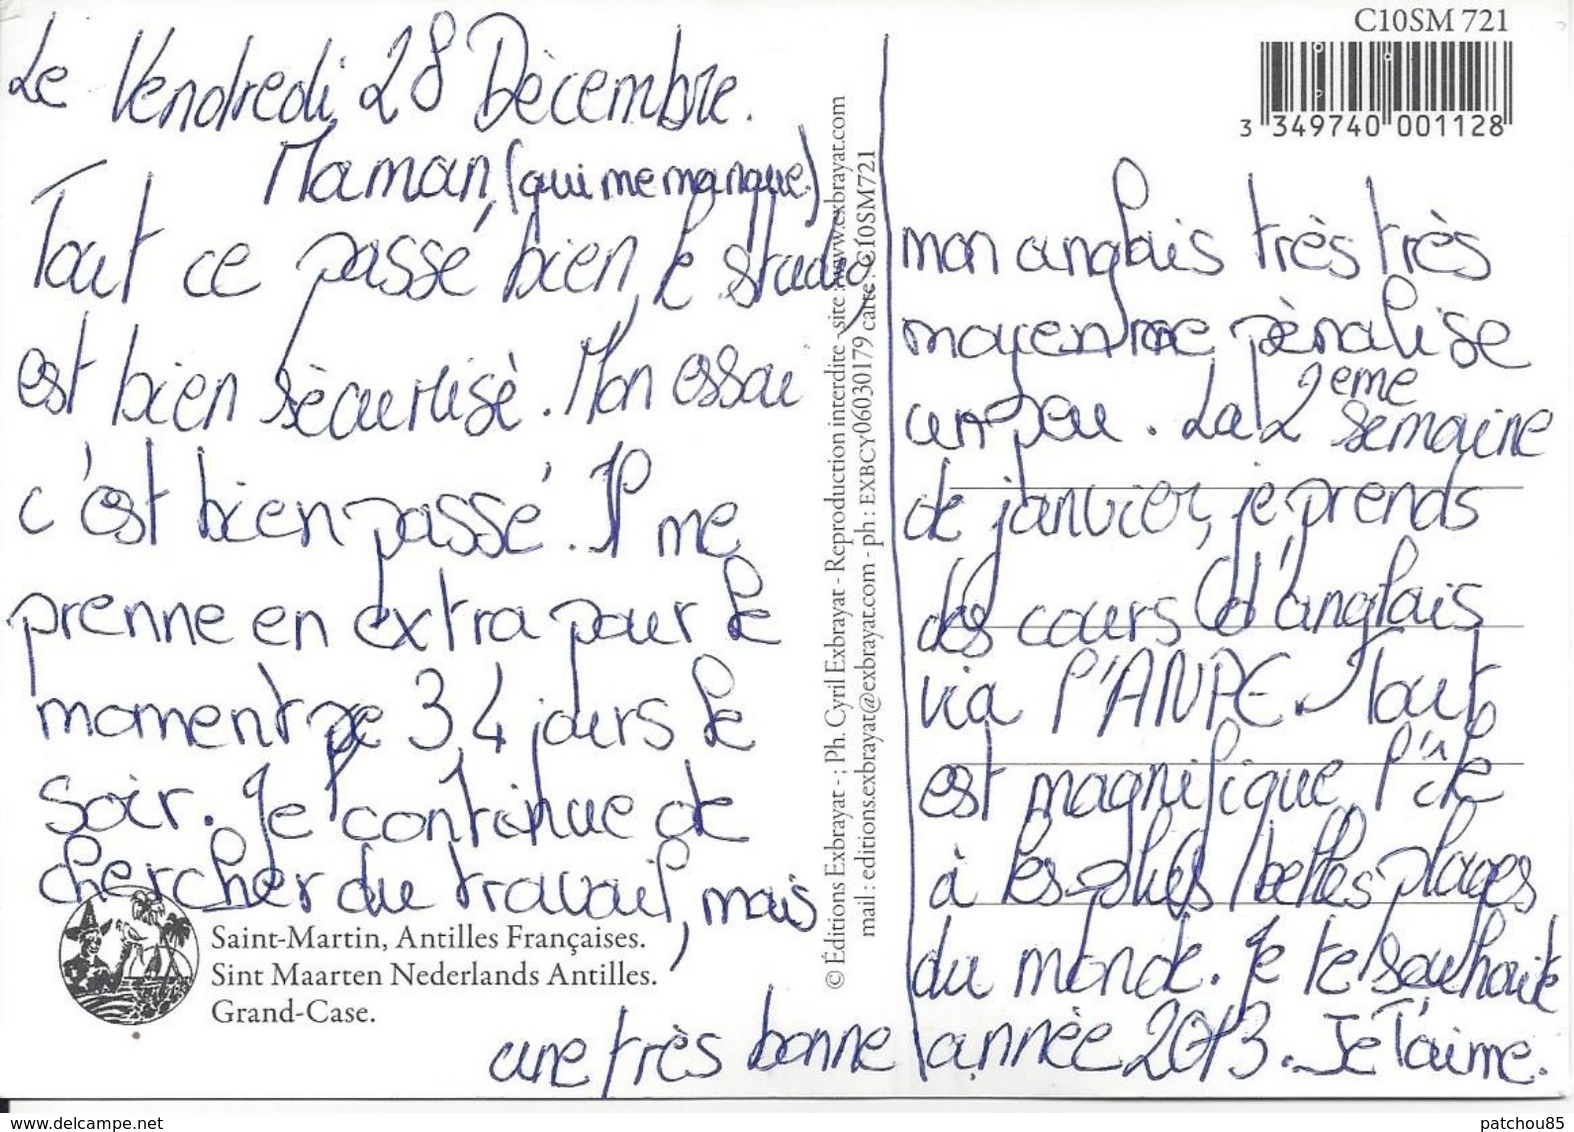 C10SM 721
3 349740 001128
Le Vendredi 28 Dècembre.
Maman, (qui me manque)
Tout ce passé bien, le studio,
est bien sècurisè. Mon essai
c'est bien passé. Il me
prenne en extra pour le
moment 3, 4 jours le
soir. Je continue de
chercher du travail, mais
mon anglais très très
moyenne me pènalise
un peu. La 2 eme semaine
de janvier, je prends
des cours d'anglais
via l'ANPE. Tout
est magnifique, l'île
à les plus belles plages
du monde. Je te souhaite
une très bonne annèe 2013. Je T'aime.
Saint-Martin, Antilles Françaises.
Sint Maarten Nederlands Antilles.
Grand-Case.
© Éditions Exbrayat - ; Ph. Cyril Exbrayat - Reproduction interdite - site : www.exbrayat.com
mail : editions.exbrayat@exbrayat.com - ph : EXBCY06030179 carte : C10SM721
www.delcampe.net
patchou85